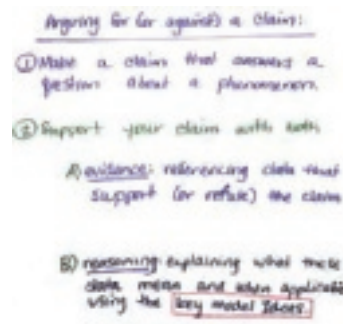 Arguing for (or against) a claim:
① Make a claim that answers a
question about a phenomenon.
② Support your claim with both
A) evidence: referencing data that
support (or refute) the claim
B) reasoning: explaining what these
data mean and when applicable
using the key model ideas.